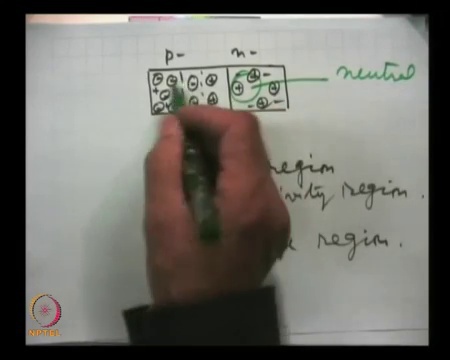 p- n-
neutral
region
region.
region.
NPTEL